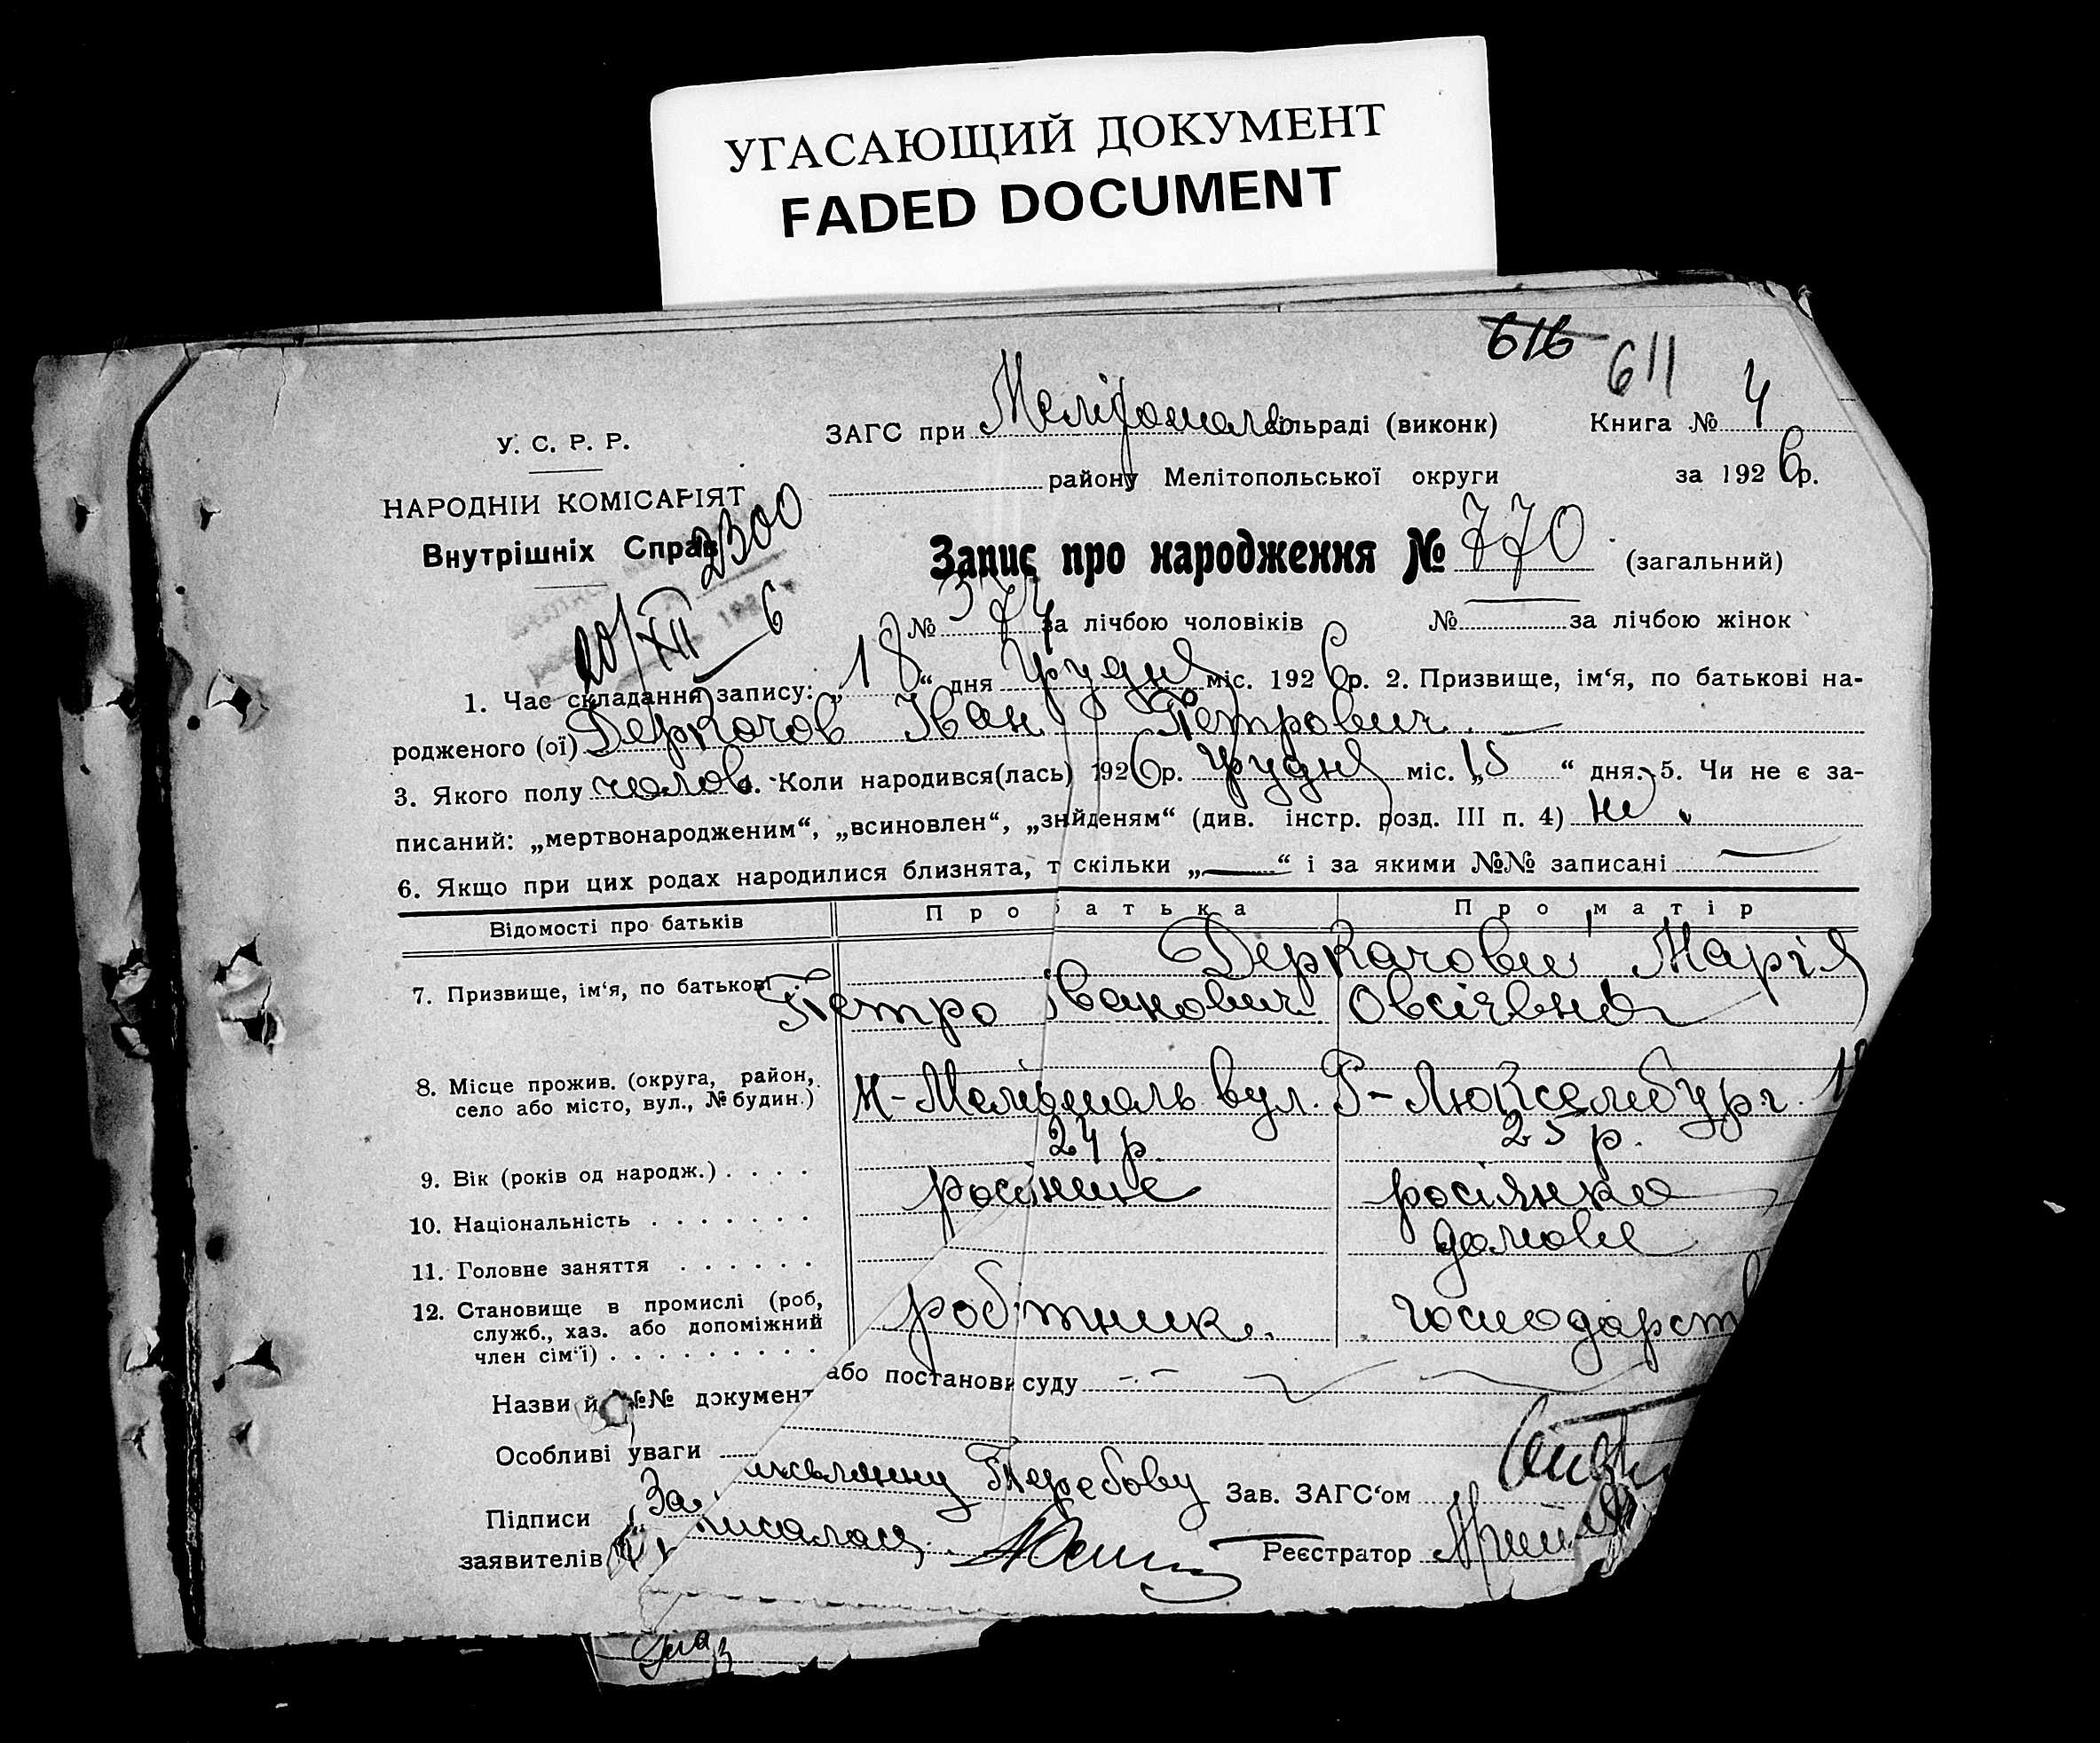 УГАСАЮЩИЙ ДОКУМЕНТ
FADED DOCUMENT
616 611
У. С. Р. Р.
ЗАГС при сільраді (виконк) Книга № 4
району Мелітопольської округи за 1926р.
НАРОДНІЙ КОМІСАРІЯТ
Внутрішніх Справ
2300
20/XII 6
Запис про народження № 770 (загальний)
№ 374 за лічбою чоловіків № за лічбою жінок
1. Час складання запису: „18“ дня Грудня міс. 1926р. 2. Призвище, ім‘я, по батькові на-
родженого (ої) Деркачов Іван Петрович
3. Якого полу чолов. 4. Коли народився(лась) 1926р. Грудня міс. „15“ дня. 5. Чи не є за-
писаний: „мертвонародженим“, „всиновлен“, „знйденям“ (див. інстр. розд. III п. 4) ні
6. Якщо при цих родах народилися близнята, т скільки „—“ і за якими №№ записані —
Відомості про батьків Про батька Про матір
7. Призвище, ім‘я, по батькові Деркачови Марія
Петро Іванович Овсіївна
8. Місце прожив. (округа, район,
село або місто, вул., № будин.) М-Мелітополь вул. Р-Люксембург.
9. Вік (років од народж.) . . . . 24 р. 25 р.
10. Національність . . . . . . . росіянин росіянка
11. Головне заняття . . . . . . домове
12. Становище в промислі (роб,
служб., хаз. або допоміжний
член сім‘ї) . . . . . . . . . робітник. господарств
Назви й №№ документ або постанови суду
Особливі уваги
Підписи За Зав. ЗАГС‘ом
заявителів Реєстратор